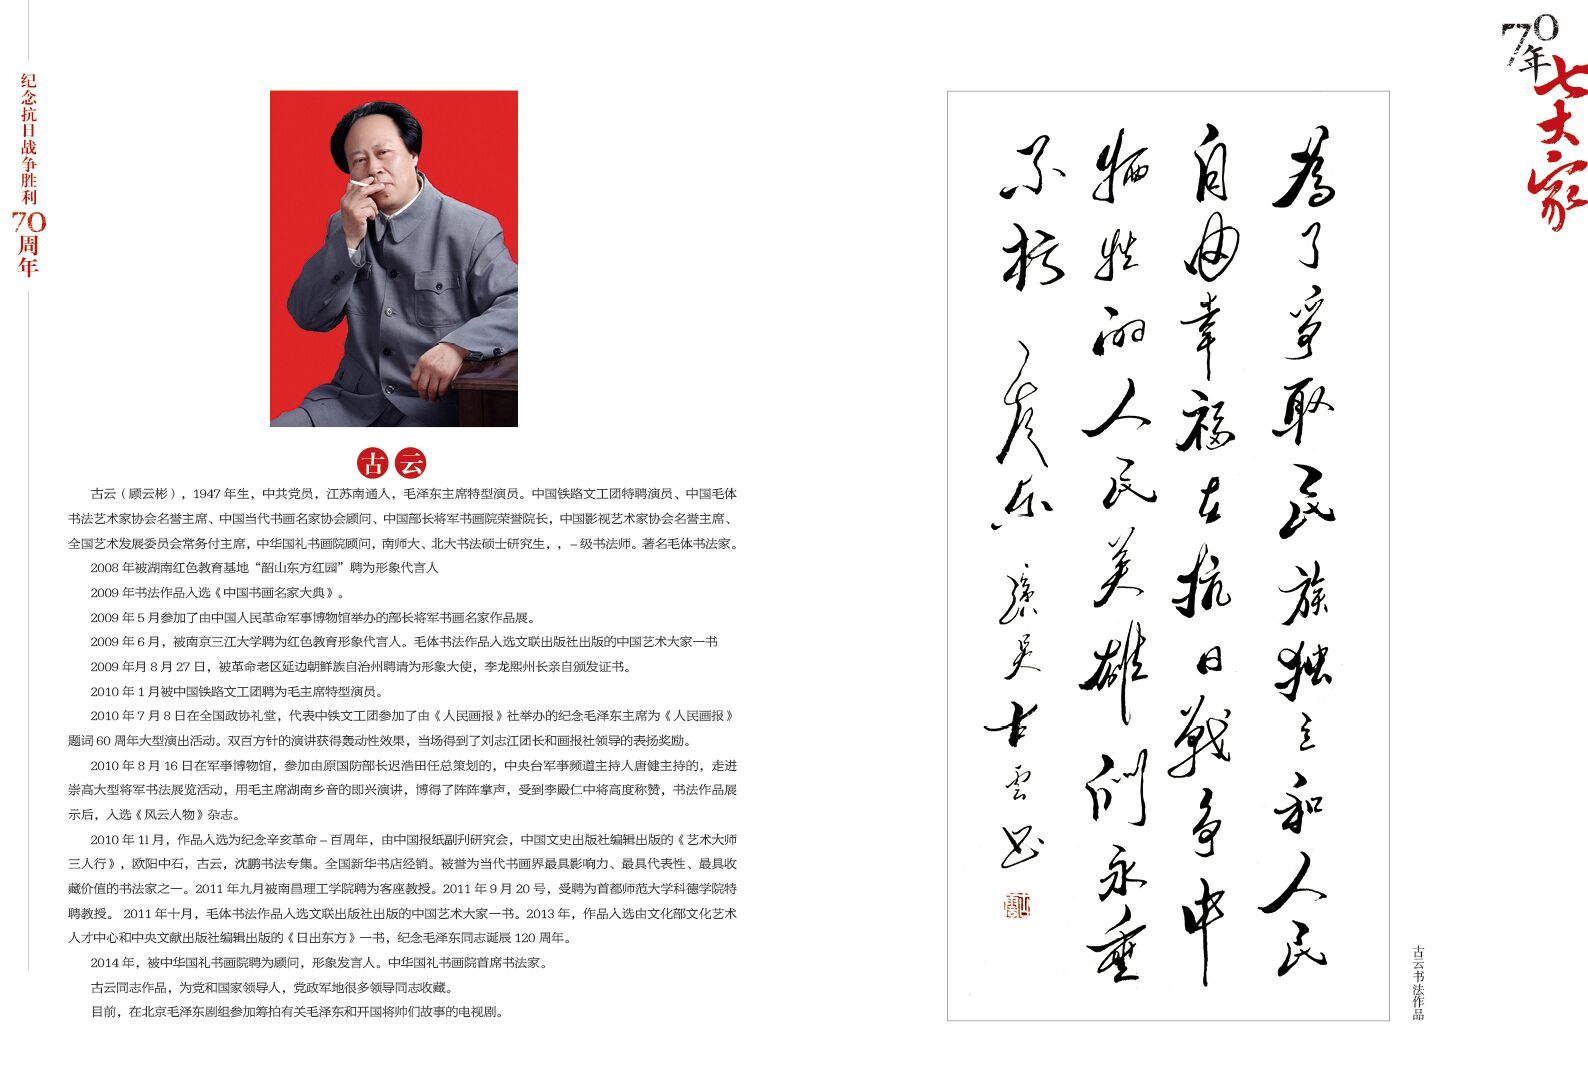 纪念抗日战争胜利70周年
古云
古云（顾云彬），1947 年生，中共党员，江苏南通人，毛泽东主席特型演员。中国铁路文工团特聘演员、中国毛体
书法艺术家协会名誉主席、中国当代书画名家协会顾问、中国部长将军书画院荣誉院长，中国影视艺术家协会名誉主席、
全国艺术发展委员会常务付主席，中华国礼书画院顾问，南师大、北大书法硕士研究生，，– 级书法师。著名毛体书法家。
2008 年被湖南红色教育基地“韶山东方红园”聘为形象代言人
2009 年书法作品入选《中国书画名家大典》。
2009 年 5 月参加了由中国人民革命军事博物馆举办的部长将军书画名家作品展。
2009 年 6 月，被南京三江大学聘为红色教育形象代言人。毛体书法作品入选文联出版社出版的中国艺术大家一书
2009 年月 8 月 27 日，被革命老区延边朝鲜族自治州聘请为形象大使，李龙熙州长亲自颁发证书。
2010 年 1 月被中国铁路文工团聘为毛主席特型演员。
2010 年 7 月 8 日在全国政协礼堂，代表中铁文工团参加了由《人民画报》社举办的纪念毛泽东主席为《人民画报》
题词 60 周年大型演出活动。双百方针的演讲获得轰动性效果，当场得到了刘志江团长和画报社领导的表扬奖励。
2010 年 8 月 16 日在军事博物馆，参加由原国防部长迟浩田任总策划的，中央台军事频道主持人唐健主持的，走进
崇高大型将军书法展览活动，用毛主席湖南乡音的即兴演讲，博得了阵阵掌声，受到李殿仁中将高度称赞，书法作品展
示后，入选《风云人物》杂志。
2010 年 11 月，作品入选为纪念辛亥革命 – 百周年，由中国报纸副刊研究会，中国文史出版社编辑出版的《艺术大师
三人行》，欧阳中石，古云，沈鹏书法专集。全国新华书店经销。被誉为当代书画界最具影响力、最具代表性、最具收
藏价值的书法家之一。2011 年九月被南昌理工学院聘为客座教授。2011 年 9 月 20 号，受聘为首都师范大学科德学院特
聘教授。 2011 年十月，毛体书法作品入选文联出版社出版的中国艺术大家一书。2013 年，作品入选由文化部文化艺术
人才中心和中央文献出版社编辑出版的《日出东方》一书，纪念毛泽东同志诞辰 120 周年。
2014 年，被中华国礼书画院聘为顾问，形象发言人。中华国礼书画院首席书法家。
古云同志作品，为党和国家领导人，党政军地很多领导同志收藏。
目前，在北京毛泽东剧组参加筹拍有关毛泽东和开国将帅们故事的电视剧。
70年七大家
為了爭取民族独立和人民
自由幸福在抗日戰争中
牺牲的人民英雄們永垂
不朽
古雲书
古云书法作品